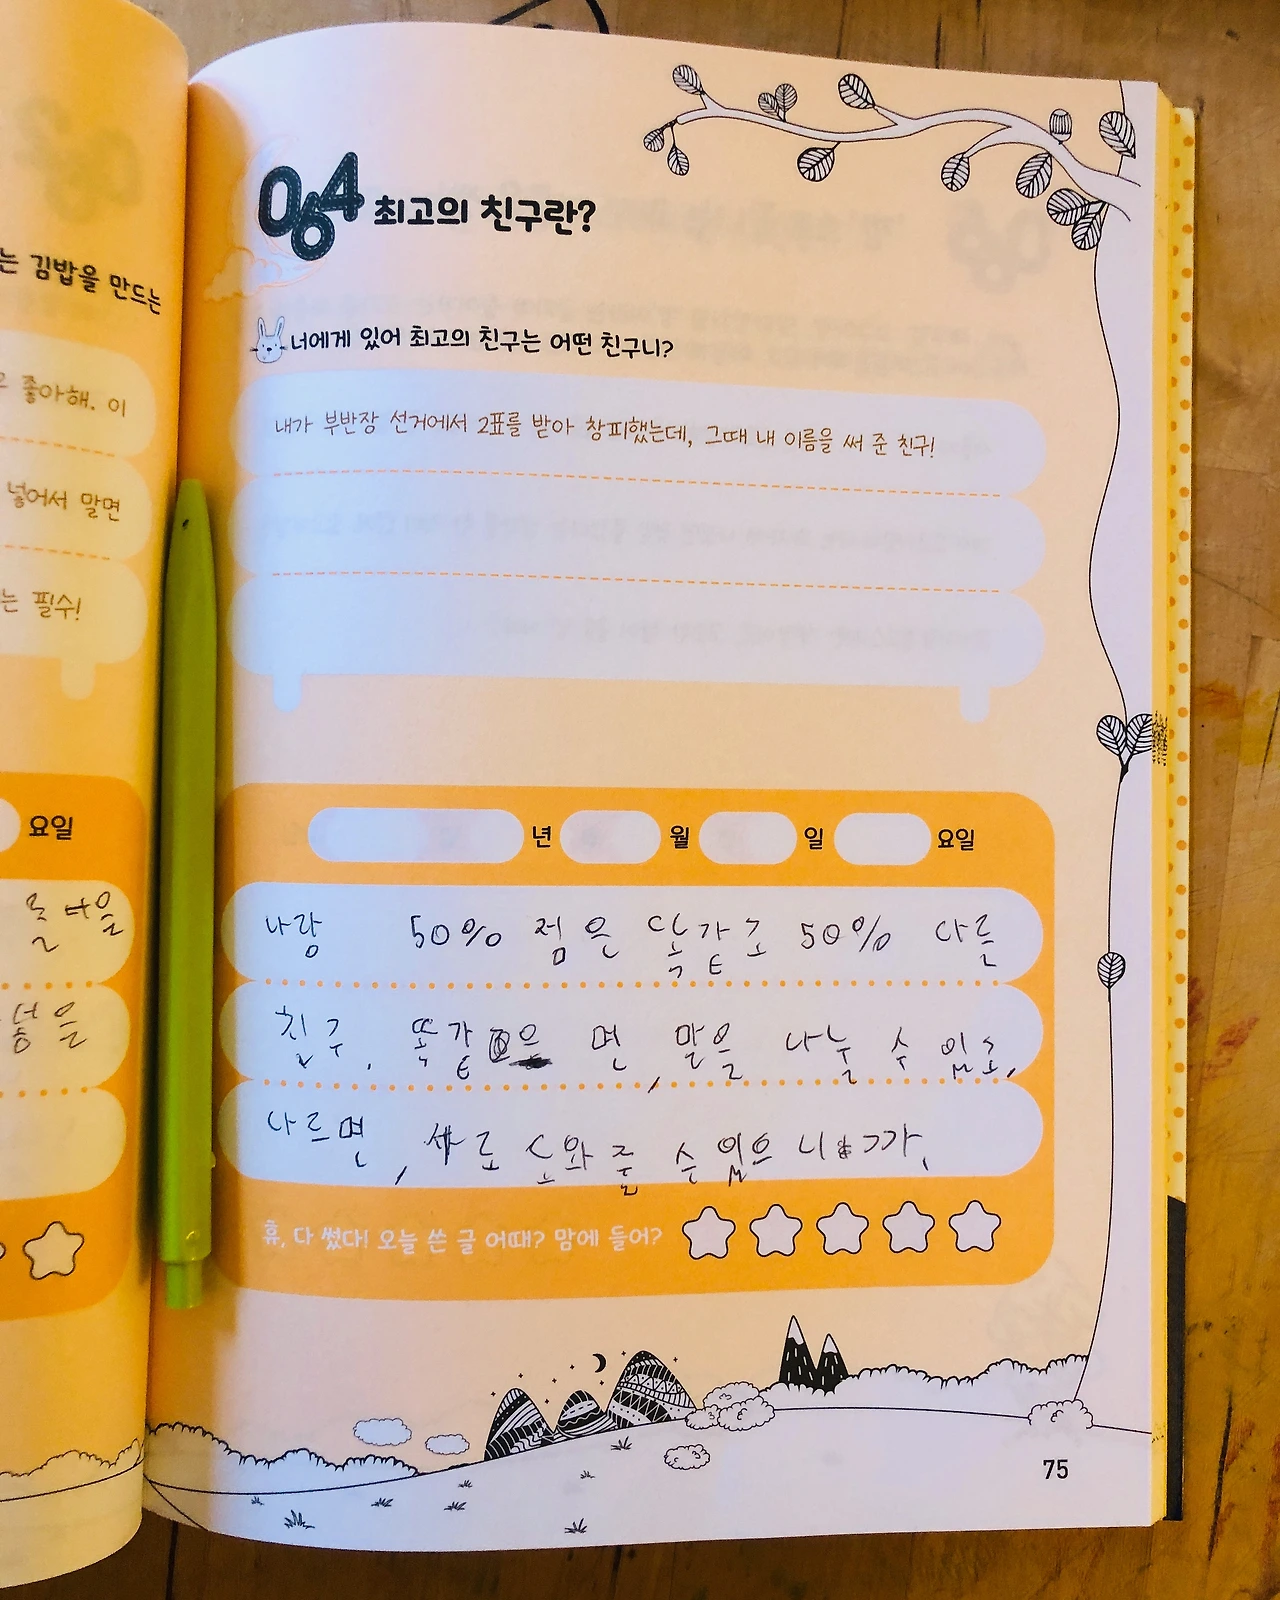 는 김밥을 만드는
좋아해. 이
넣어서 말면
는 필수!
요일
064 최고의 친구란?
너에게 있어 최고의 친구는 어떤 친구니?
내가 부반장 선거에서 2표를 받아 창피했는데, 그때 내 이름을 써 준 친구!
년 월 일 요일
나랑 50% 점은 똑같고 50% 다른
친구. 똑같으면, 말을 나눌 수 있고,
다르면, 서로 도와 줄 수 있으니까.
휴, 다 썼다! 오늘 쓴 글 어때? 맘에 들어?
75